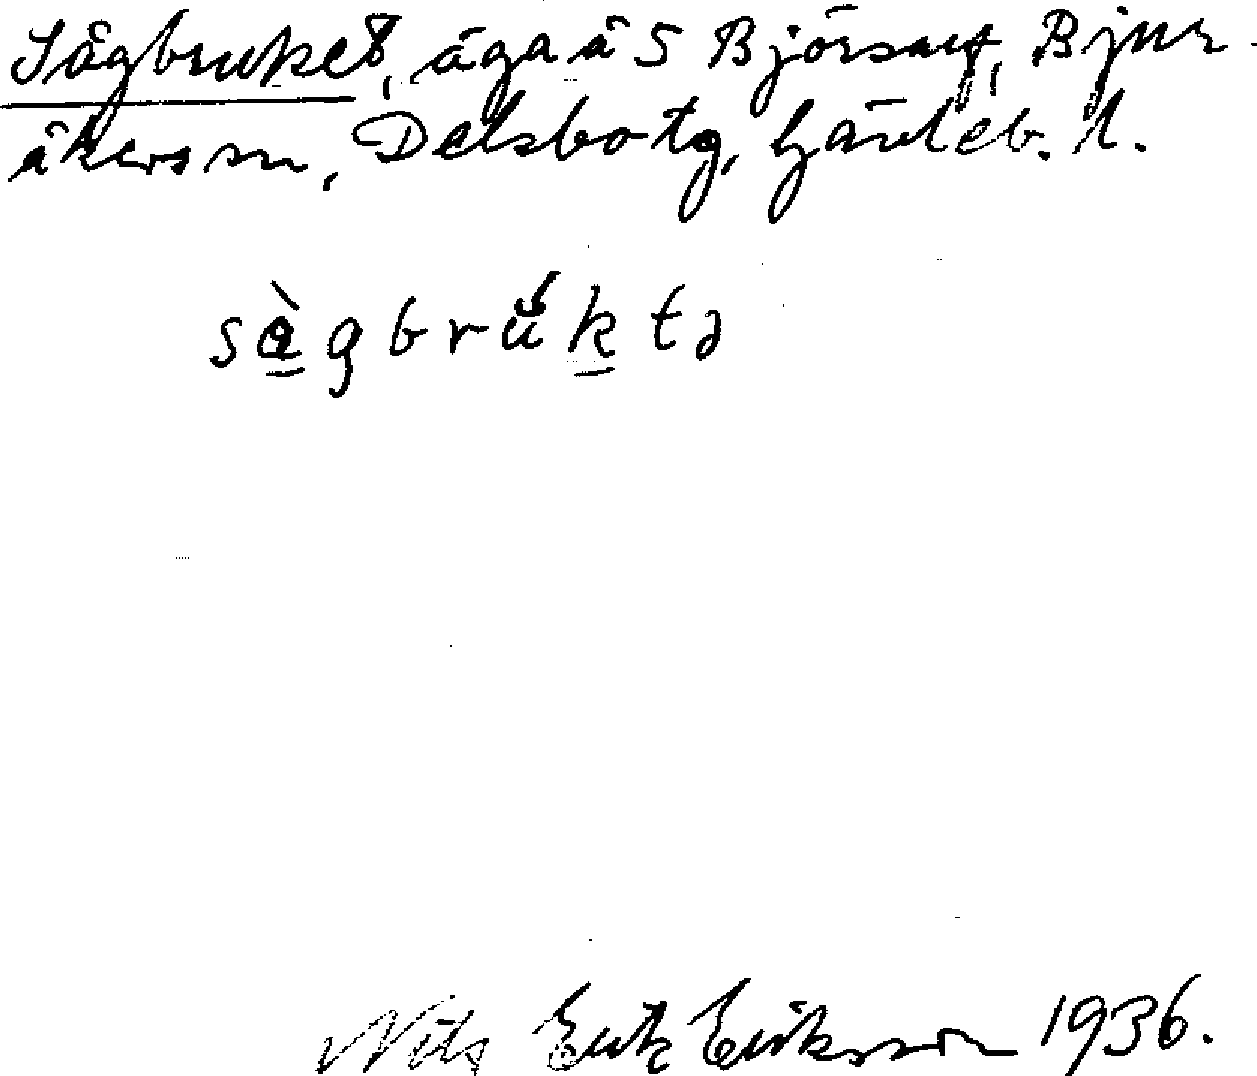 Sågbruket, äga å S Björsarf, Bjur-
åkers sn, Delsbo tg, Gävleb. l.
sàgbrŭ́ktə
Nils Erik Eriksson 1936.